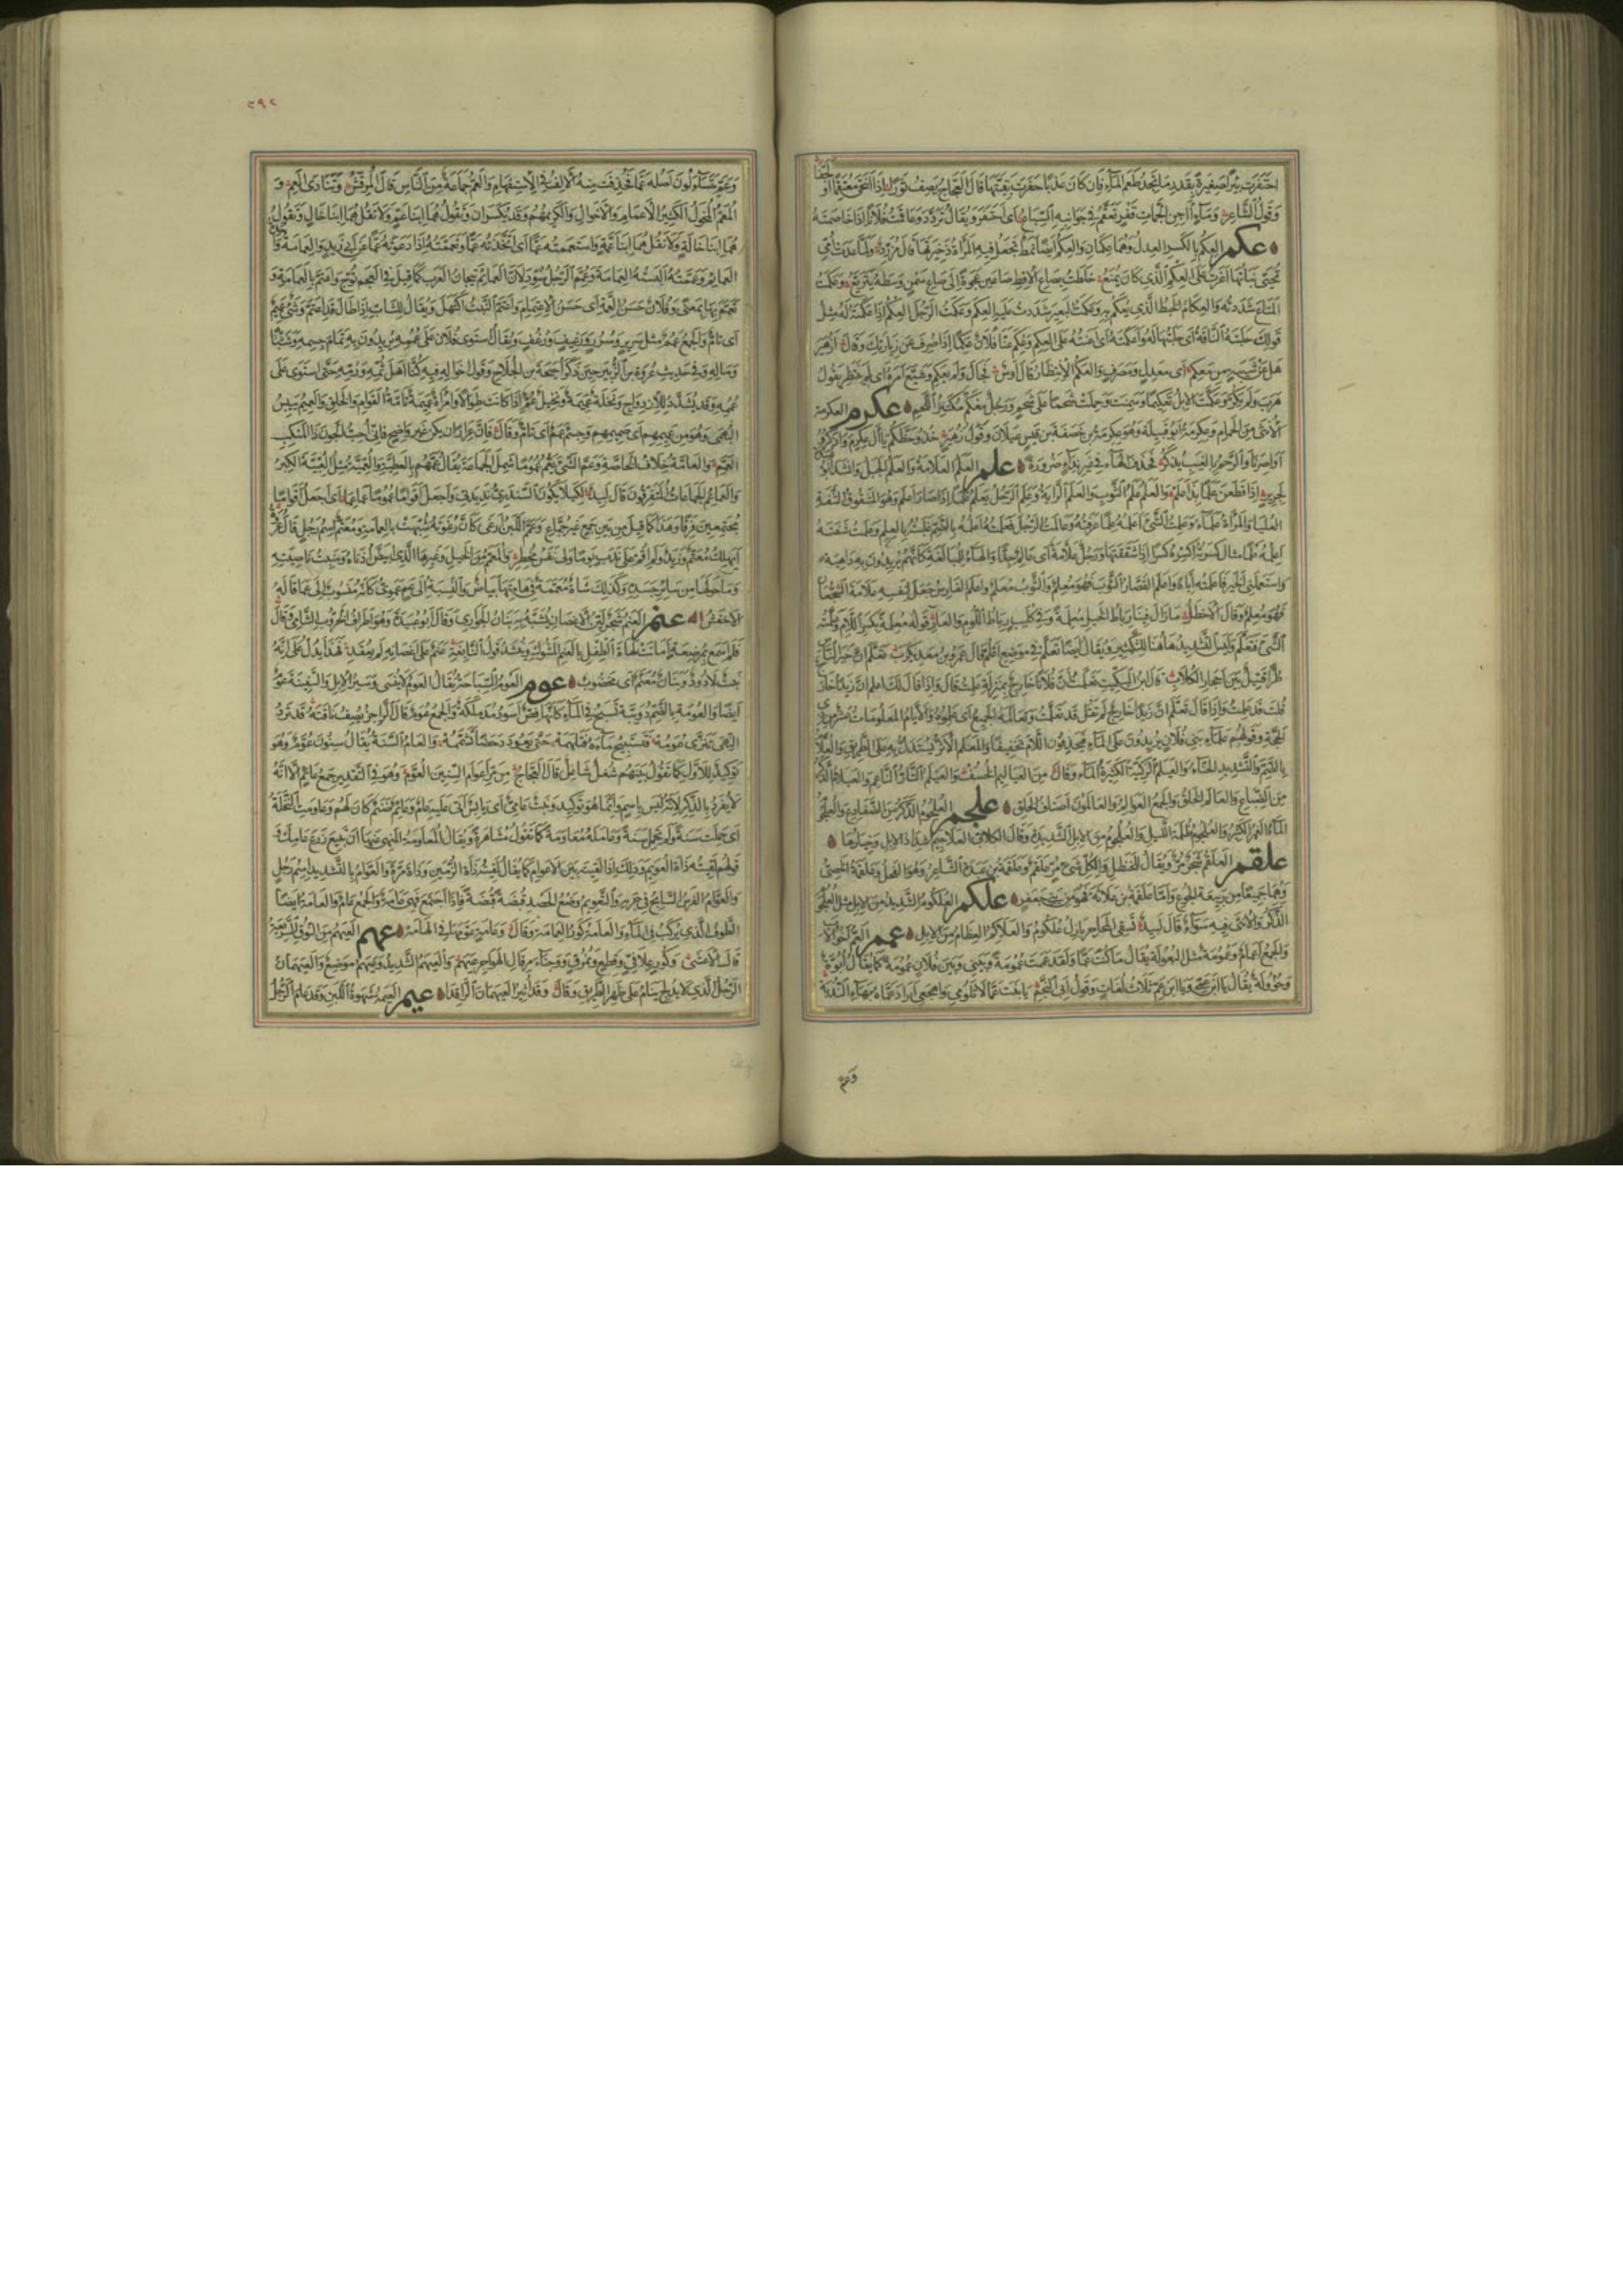 احتفرت بئرا صغيرة بقدر ما تجد طعم الماء فان كان عذبا حفرت بقيتها قال العجاج يصف ثورا اذا انتحى معتقما او
وقول الشاعر وماء آجن الجمات قفر تعقم في جوانبه السباع اى احتفر ويقال تردد وعاقمت فلانا اذا خاصمته
عكم العكم بالكسر العدل وهما عكمان والعكم ايضا نمط تجعل فيه المرأة ذخيرتها قال مزرد ولما غدت امى
تحيى بناتها اغرت على العكم الذى كان يمنع خلطت بصاع الاقط صاعين عجوة الى صاع سمن وسطه يتريع وعكمت
المتاع شددته والعكام الخيط الذى يعكم به وعكمت البعير شددت عليه العكم وعكمت الرجل العكم اذا عكمته له مثل
قولك حلبته الناقة اى حلبتها له واعكمته اى اعنته على العكم وعكم عنا فلان عكما اذا صرف عن زيارتك وقال ازهير
هل عن شيبة من معكم اى معدل ومصرف والعكم الانتظار قال اوس فجال ولم يعكم وشيع امره اى لم ينتظر يقول
هرب ولم يكر وعكمت الابل تعكيما وسمنت وحملت شحما على شحم ورجل معكم مكتنز اللحم عكرم العكرمة
الانثى من الحمام وعكرمة ابو قبيلة وهو عكرمة بن خصفة بن قيس عيلان وقول زهير خذوا حظكم يا آل عكرم واذكروا
اواصرنا والرحم بالغيب يذكر فحذف الهاء في غير نداء ضرورة علم العلم العلامة والعلم الجبل وانشد
لجرير اذا قطعن علما بدا علم والعلم علم الثوب والعلم الراية وعلم الرجل يعلم علما اذا صار اعلم وهو المشقوق الشفة
العليا والمرأة علماء وعلمت الشئ اعلمه علما عرفته وعالمت الرجل فعلمته اعلمه بالضم غلبته بالعلم وعلمت شفته
اعلمه علما مثال كسرته اكسره كسرا اذا شققتها ورجل علامة اى عالم جدا والهاء للمبالغة كانهم يريدون به داهية
واستعلمنى الخبر فاعلمته اياه واعلم القصار الثوب فهو معلم والثوب معلم واعلم الفارس جعل لنفسه علامة الشجعان
فهو معلم وقال الاخطل ما زال فينا رباط الخيل معلمة وفي كليب رباط اللوم والعار قوله معلمة بكسر اللام وعلمته
الشئ فتعلم وليس التشديد هاهنا للتكثير ويقال ايضا تعلم في موضع اعلم قال عمرو بن معديكرب تعلم ان خير الناس
طرا قتيل بين احجار الكلاب قال ابن السكيت تعلمت ان فلانا خارج بمنزلة علمت قال واذا قال لك اعلم ان زيدا خارج
قلت قد علمت واذا قال تعلم ان زيدا خارج لم تقل قد تعلمت وتعالمه الجميع اى علموه والايام المعلومات عشر من ذى
الحجة وقولهم علماء بنى فلان يريدون على الماء فيحذفون اللام تخفيفا والمعلم الاثر يستدل به على الطريق والعلام
بالضم والتشديد الحناء والعيلم الركية الكثيرة الماء وقال من العياليم الخسف والعيلم التار الناعم والعيلام الذكر
من الضباع والعالم الخلق والجمع العوالم والعالمون اصناف الخلق علجم العلجوم الذكر من الضفادع والعلجوم
الماء الغمر الكثير والعلجوم ظلمة الليل والعلجوم من الابل الشديدة وقال الكلابى العلاجيم شداد الابل وخيارها
علقم العلقم شجر مر ويقال للحنظل ولكل شئ مر علقم وعلقمة بن عبدة الشاعر وهو الفحل وعلقمة الخصى
وهما جميعا من ربيعة الجوع واما علقمة بن علاثة فهو من بنى جعفر علكم العلكوم الشديدة من الابل مثل العلجوم
الذكر والانثى فيه سواء قال لبيد تسقى المحاجر بازل علكوم والعلاكم العظام من الابل عمم العم اخو الاب
والجمع اعمام وعمومة مثل البعولة يقال ما كنت عما ولقد عممت عمومة وبينى وبين فلان عمومة كما يقال ابوة
وخؤولة يقال يا ابن عمى ويا ابن عم ثلاث لغات وقول ابى النجم يا بنت عما لا تلومى واهجعى اراد عماه بهاء الندبة
وعم
٣٩٢
وعم يتساءلون اصله عما فحذفت منه الالف في الاستفهام والعم جماعة من الناس قال المرقش وتنادى العم و
المعم المخول الكثير الاعمام والاخوال والكريمهم وقد يكسران وتقول هما ابنا عم ولا تقل هما ابنا خال وتقول
هما ابنا خالة ولا تقل هما ابنا عمة واستعممته عما اى اتخذته عما وتعممته اذا دعوته عما عن ابى زيد والعمامة واحدة
العمائم وعممته البسته العمامة وعمم الرجل سود لان العمائم تيجان العرب كما قيل في العجم توج واعتم بالعمامة و
تعمم بها بمعنى وفلان حسن العمة اى حسن الاعتمام واعتم النبت اكتهل ويقال للشاب اذا طال قد اعتم وشئ عميم
اى تام والجمع عمم مثل سرير وسرر ورغيف ورغف ويقال استوى فلان على عممه يريدون به تمام جسمه وشبابه
وماله وفي حديث عروة بن الزبير حين ذكر احيحة بن الجلاح وقول اخواله فيه كنا اهل ثمه ورمه حتى استوى على
عممه وقد يشدد للازدواج ونخلة عميمة ونخيل عم اذا كانت طوالا وامرأة عميمة تامة القوام والخلق والعميم يبيس
البهمى وهو من عميمهم اى صميمهم وجسم عمم اى تام وقال فان عرارا ان يكن غير واضح فانى احب الجون ذا المنكب
العمم والعامة خلاف الخاصة وعم الشئ يعم عموما شمل الجماعة يقال عمهم بالعطية والعمية مثل العبية الكبر
والعماعم الجماعات المتفرقون قال لبيد لكيلا يكون السندرى نديدتى واجعل اقواما عموما عماعما اى اجعل اقواما
مجتمعين فرقا وهذا كما قيل من بين جمع غير جماع وعمم اللبن ارغى كان رغوته شبهت بالعمامة ومعتم اسم رجل قال عروة
ايهلك معتم وزيد ولم اقم على ندب يوما ولى نفس مخطر والمعمم من الخيل وغيرها الذى ابيض اذناه ومنبت ناصيته
وما حولها من سائر جسده وكذلك شاة معممة في هامتها بياض والنسبة الى عم عموى كانه منسوب الى عما قاله
الاخفش عنم العنم شجر لين الاغصان يشبه به بنان الجوارى وقال ابو عبيدة وهو اطراف الخروب الشامى قال
فلم اسمع بمرضعة امالت لهاة الطفل بالعنم المسوك وينشد قول النابغة عنم على اغصانه لم يعقد فهذا يدل على انه
نبت لا دود وبنان معنم اى مخضوب عوم العوم السباحة يقال العوم لا ينسى وسير الابل والسفينة عوم
ايضا والعومة بالضم دويبة تسبح في الماء كانها فص اسود مدملكة والجمع عوم قال الراجز يصف ناقته قد ترد
النهى تنزى عومه فتستبيح ماءه فتلهمه حتى يعود دحضا تشممه والعام السنة يقال سنون عوم وهو
توكيد للاول كما تقول بينهم شغل شاغل قال العجاج من مر اعوام السنين العوم وهو في التقدير جمع عائم الا انه
لا يفرد بالذكر لانه ليس باسم وانما هو توكيد ونبت عامى اى يابس اتى عليه عام وعائم صنم كان لهم وعاومت النخلة
اى حملت سنة ولم تحمل سنة وعامله معاومة كما تقول مشاهرة ويقال المعاومة المنهى عنها ان تبيع زرع عامك
قولهم لقيته ذات العويم وذلك اذا لقيته بين الاعوام كما يقال لقيته ذات الزمين وذات مرة والعوام بالتشديد اسم رجل
والعوام الفرس السابح في جريه والتعويم وضع الحصد قبضة قبضة فاذا اجتمع فهى عامة والجمع عام والعامة ايضا
الطوف الذى يركب في الماء والعامة كور العمامة وقال وعامة عومها في الهامه عهم العيهم من النوق السريعة
قال الاعشى وكور علافى وقطع ونمرق ووجناء مرقال الهواجر عيهم والعيهم الشديد وعيهم موضع والعيهمان
الرجل الذى لا يدلج ينام على ظهر الطريق وقال وقد اثير العيهمان الراقدا عيم العيمة شهوة اللبن وقد عام الرجل